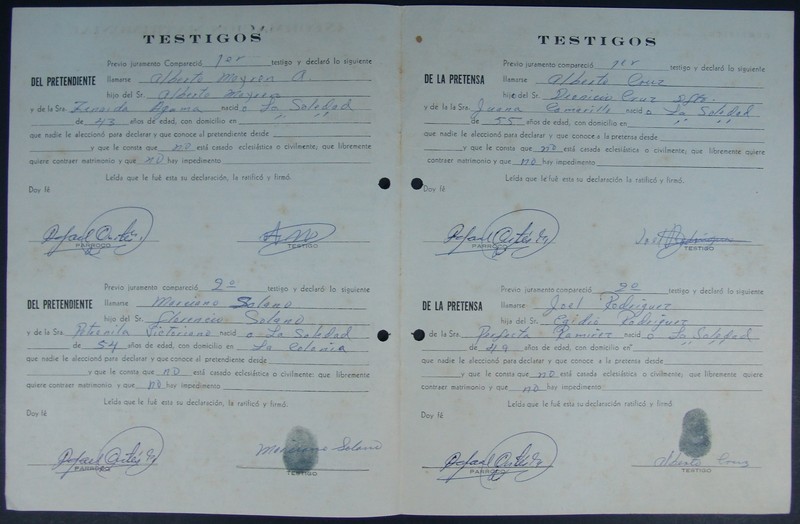 TESTIGOS
Previo juramento Compareció 1er testigo y declaró lo siguiente
DEL PRETENDIENTE llamarse Alberto A.
hijo del Sr. Alberto
y de la Sra. Zenaida nacid o La Soledad
de 43 años de edad, con domicilio en " "
que nadie le aleccionó para declarar y que conoce al pretendiente desde
y que le consta que no está casado eclesiástica o civilmente; que libremente
quiere contraer matrimonio y que no hay impedimento
Leída que le fué esta su declaración, la ratificó y firmó.
Doy fé
Rafael
PARROCO
TESTIGO
Previo juramento compareció 2o testigo y declaró lo siguiente
DEL PRETENDIENTE llamarse Mariano Solano
hijo del Sr. Florencio Solano
y de la Sra. Petronila Victoriano nacid o La Soledad
de 54 años de edad, con domicilio en La Colonia
que nadie le aleccionó para declarar y que conoce al pretendiente desde
y que le consta que no está casado eclesiástica o civilmente; que libremente
quiere contraer matrimonio y que no hay impedimento
Leída que le fué esta su declaración, la ratificó y firmó.
Doy fé
Rafael
PARROCO
Mariano Solano
TESTIGO
TESTIGOS
Previo juramento compareció 1er testigo y declaró lo siguiente
DE LA PRETENSA llamarse Alberto Cruz
hijo del Sr. Dionicio Cruz
y de la Sra. Juana nacid o La Soledad
de 55 años de edad, con domicilio en " "
que nadie le aleccionó para declarar y que conoce a la pretensa desde
y que le consta que no está casada eclesiástica o civilmente; que libremente quiere
contraer matrimonio y que no hay impedimento
Leída que le fué esta su declaración, la ratificó y firmó.
Doy fé
Rafael
PARROCO
Joel Rodriguez
TESTIGO
Previo juramento compareció 2o testigo y declaró lo siguiente
DE LA PRETENSA llamarse Joel Rodriguez
hija del Sr. Egidio Rodriguez
y de la Sra. Perfecta Ramirez nacid o La Soledad
de 49 años de edad, con domicilio en " "
que nadie le aleccionó para declarar y que conoce a la pretensa desde
y que le consta que no está casada eclesiástica o civilmente; que libremente quiere
contraer matrimonio y que no hay impedimento
Leída que le fué esta su declaración ratificó y firmó.
Doy fé
Rafael
PARROCO
Alberto Cruz
TESTIGO